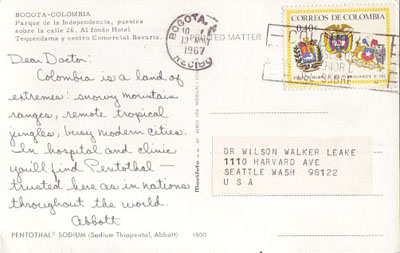 BOGOTA-COLOMBIA
Parque de la Independencia, puentes
sobre la calle 26. Al fondo Hotel
Tequendama y centro Comercial Bavaria.
Dear Doctor:
Colombia is a land of
extremes: snowy mountain
ranges, remote tropical
jungles, busy modern cities.
In hospital and clinic
you'll find Pentothal —
trusted here as in nations
throughout the world.
Abbott
PENTOTHAL® SODIUM (Sodium Thiopental, Abbott) 1500
BOGOTA
1967
RECIBO
PRINTED MATTER
CORREOS DE COLOMBIA
0.40
DR WILSON WALKER LEAKE
1110 HARVARD AVE
SEATTLE WASH 98122
U S A